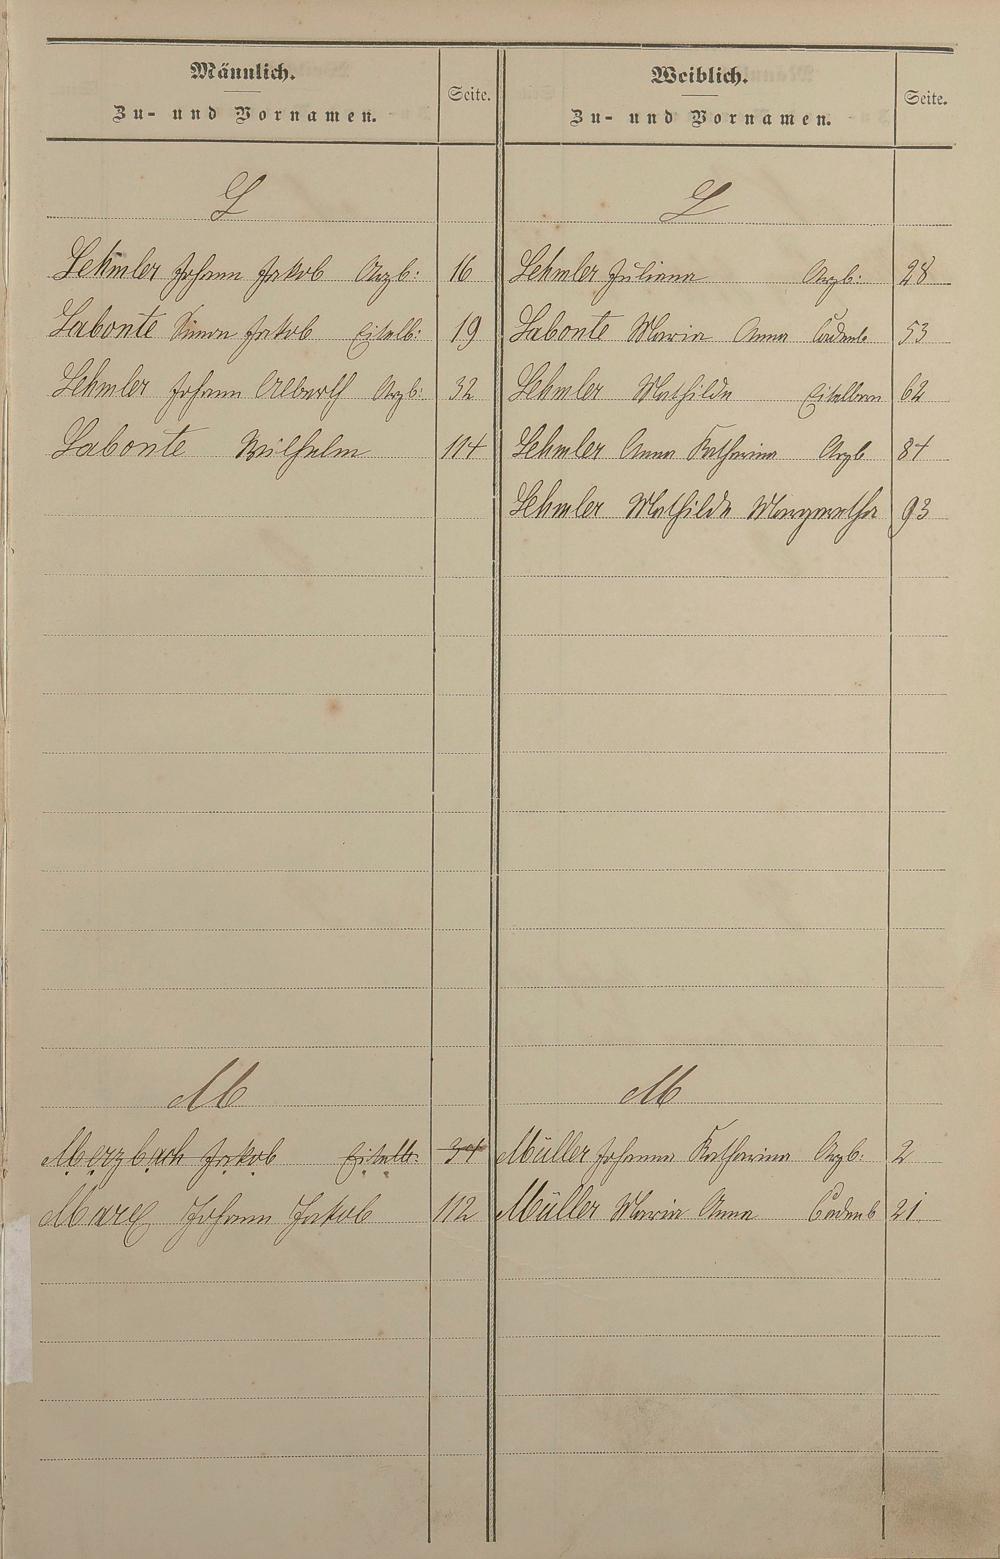 Männlich.
Zu- und Vornamen.
Seite.
Weiblich.
Zu- und Vornamen.
Seite.
L
L
Lehmler Johann Jakob Arzb: 16
Lehmler Juliana Arzb: 28
Labonte Simon Jakob Eitelb: 19
Labonte Maria Anna Cadenb 53
Lehmler Johann Alberth Arzb: 32
Lehmler Mathilde Eitelborn 62
Labonte Wilhelm 114
Lehmler Anna Katharina Arzb 84
Lehmler Mathilde Margaretha 93
M
M
Merzbach Jakob Eitelb: 34
Müller Johanna Katharina Arzb: 2
Marx Johann Jakob 112
Müller Maria Anna Cadenb 21.